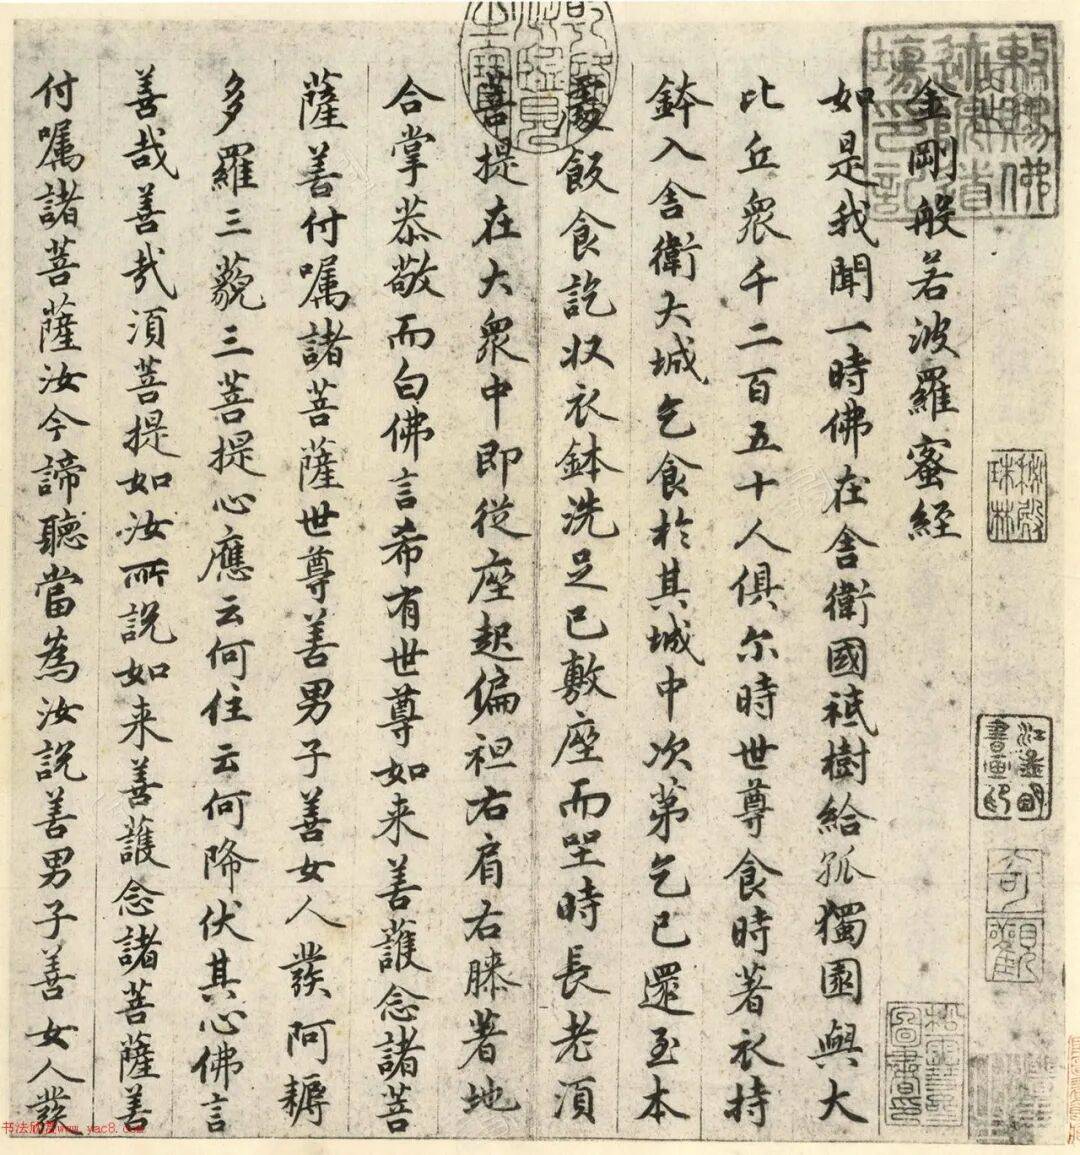 金剛般若波羅蜜經
如是我聞一時佛在舍衛國祇樹給孤獨園與大
比丘眾千二百五十人俱尔時世尊食時著衣持
鉢入舍衛大城乞食於其城中次第乞已還至本
處飯食訖收衣鉢洗足已敷座而坐時長老須
菩提在大眾中即從座起偏袒右肩右膝著地
合掌恭敬而白佛言希有世尊如来善護念諸菩
薩善付囑諸菩薩世尊善男子善女人發阿耨
多羅三藐三菩提心應云何住云何降伏其心佛言
善哉善哉須菩提如汝所說如来善護念諸菩薩善
付囑諸菩薩汝今諦聽當為汝說善男子善女人發
秘殿珠林
奇觀
书法欣赏www.yac8.com